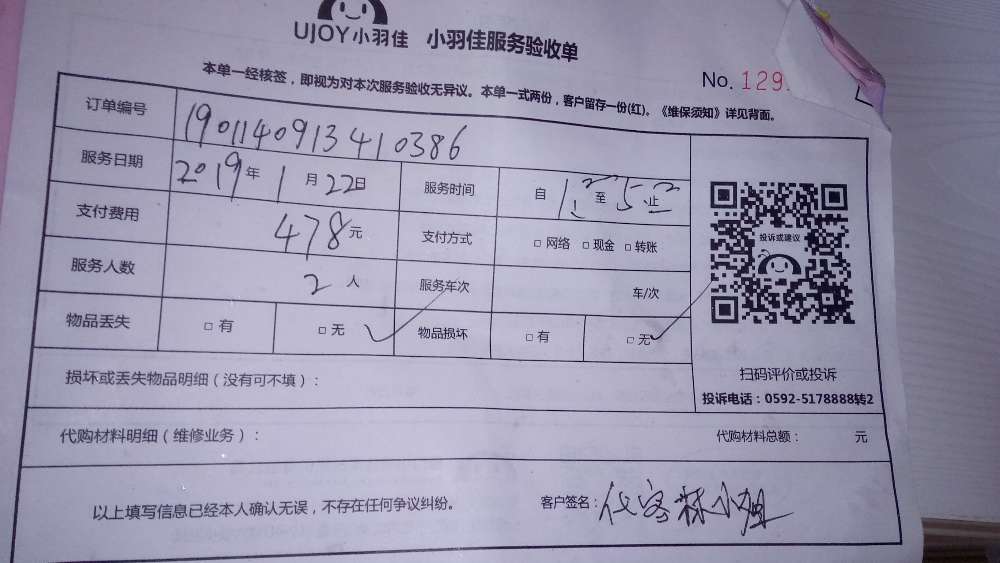 UJOY小羽佳 小羽佳服务验收单
No. 129
本单一经核签，即视为对本次服务验收无异议。本单一式两份，客户留存一份(红)。《维保须知》详见背面。
订单编号 1901140913410386
服务日期 2019年1月22日 服务时间 自 至 止
支付费用 478元 支付方式 □网络 □现金 □转账
服务人数 2人 服务车次 车/次
物品丢失 □有 □无 ✓ 物品损坏 □有 □无 ✓
投诉或建议
扫码评价或投诉
投诉电话：0592-5178888转2
损坏或丢失物品明细（没有可不填）：
代购材料明细（维修业务）： 代购材料总额： 元
以上填写信息已经本人确认无误，不存在任何争议纠纷。 客户签名：代客 林小姐